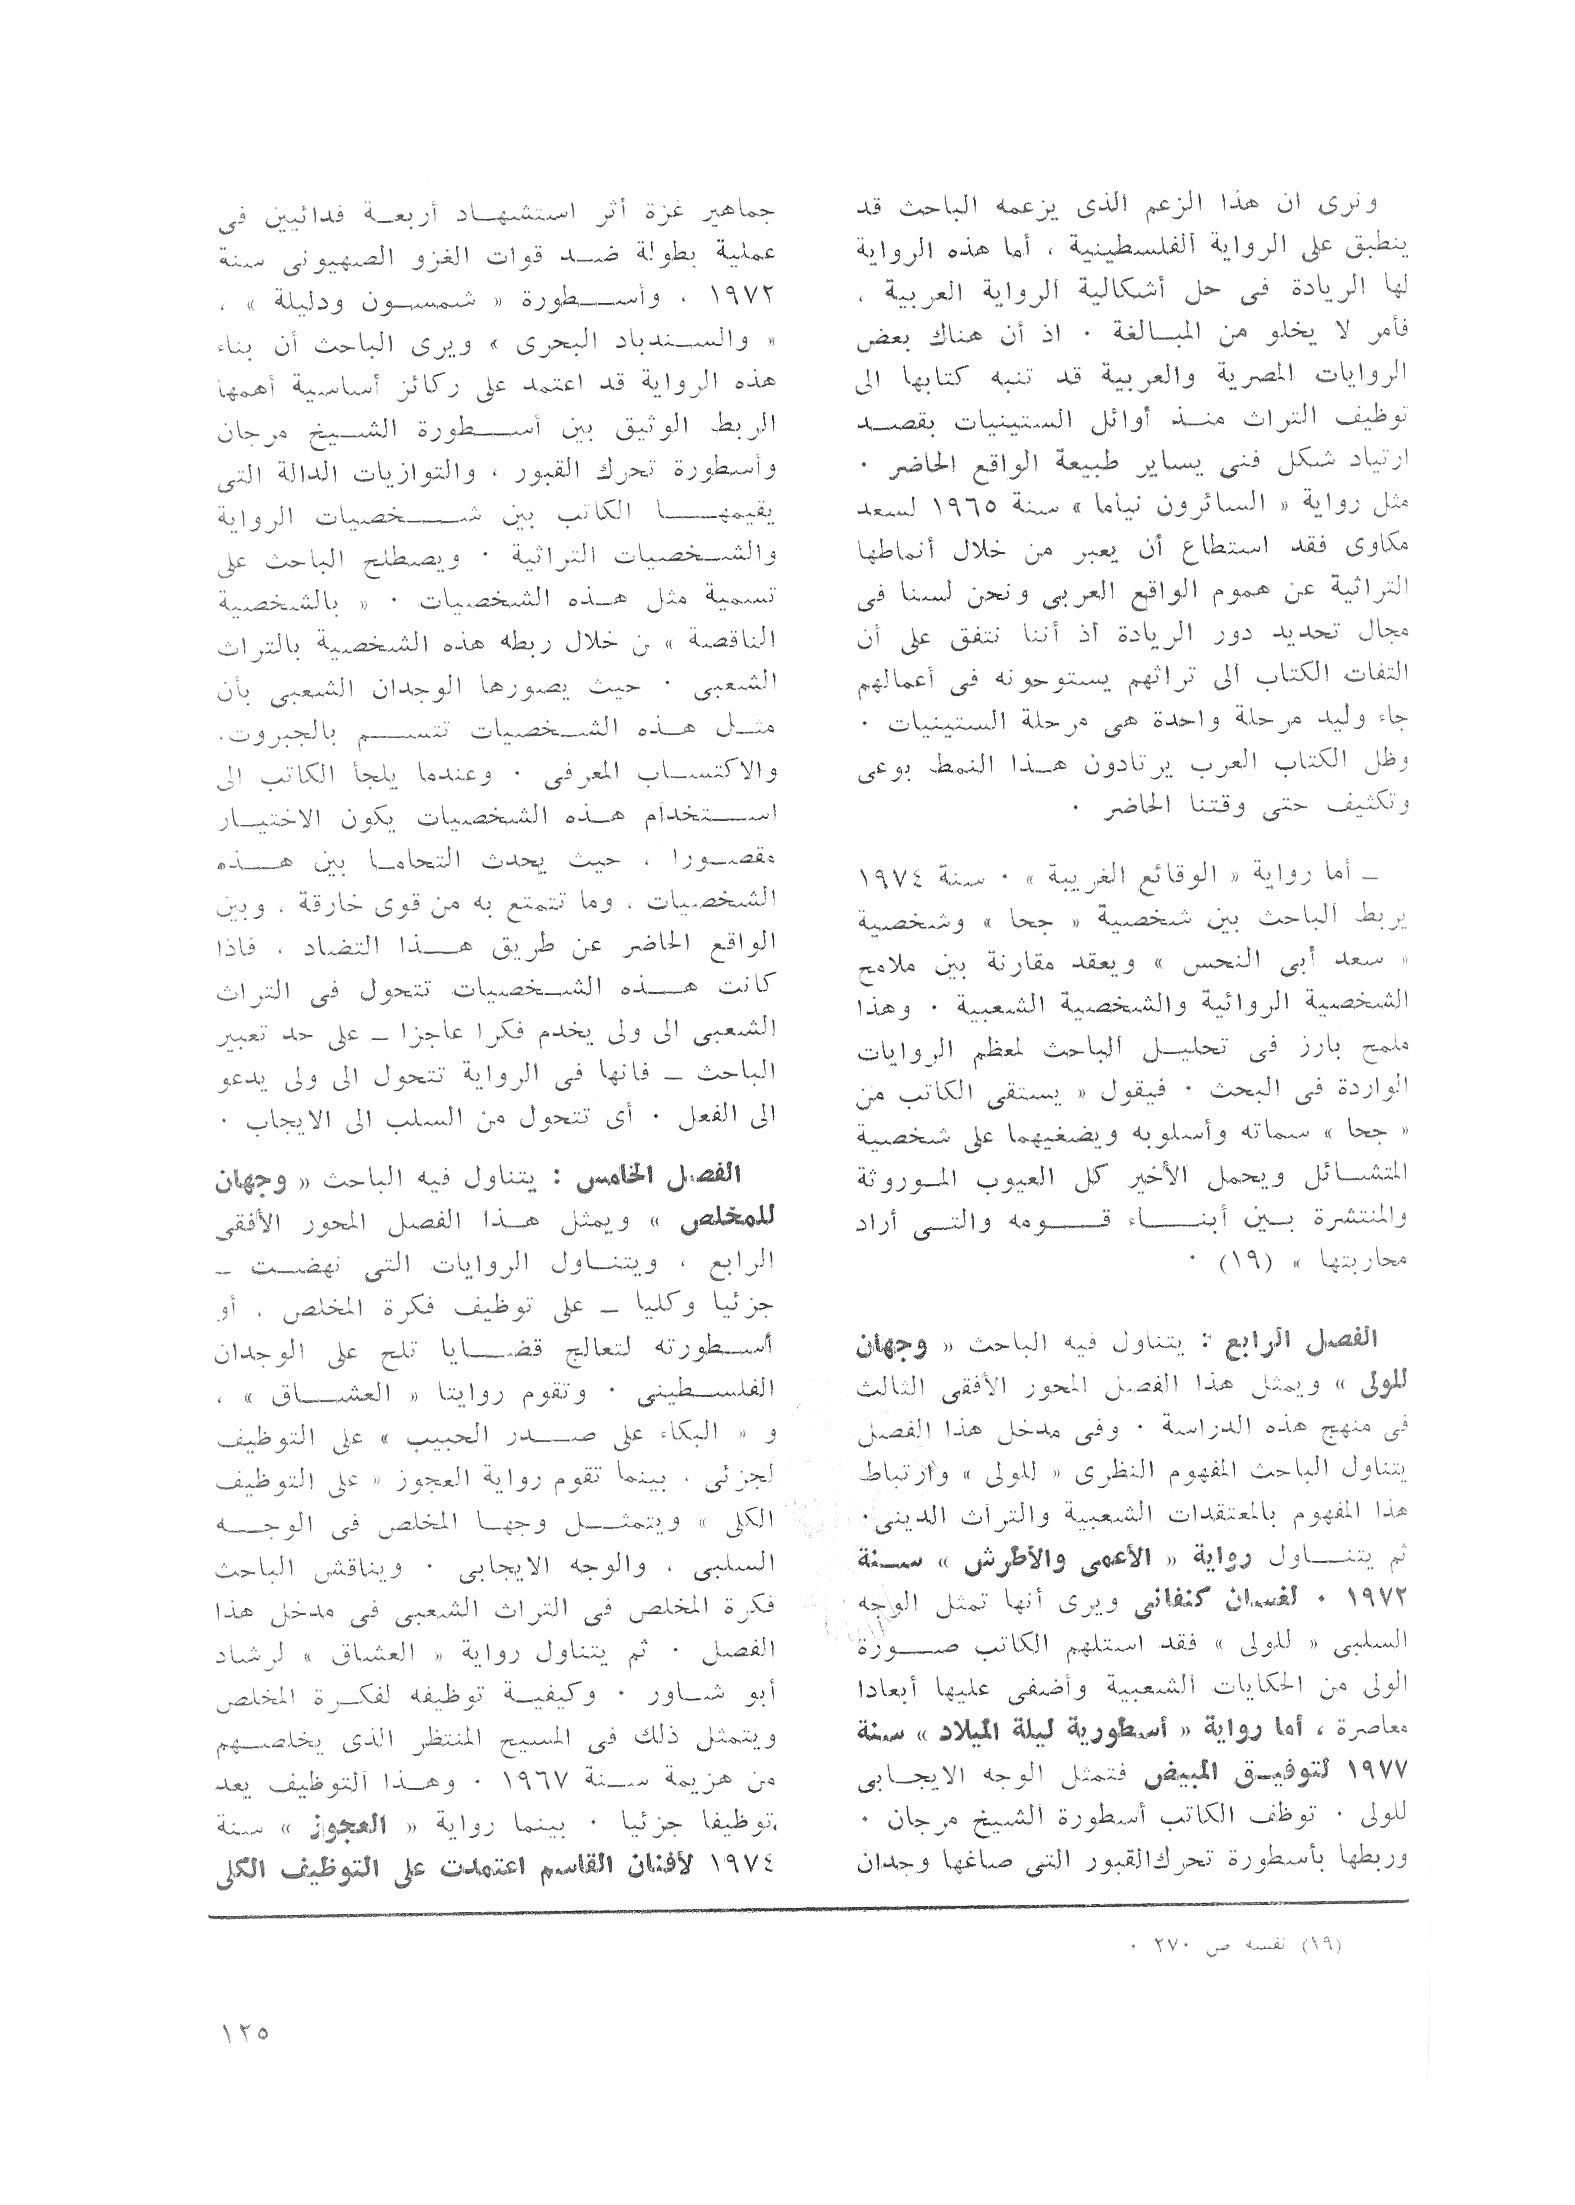 ونرى ان هذا الزعم الذى يزعمه الباحث قد
ينطبق على الرواية الفلسطينية ، أما هذه الرواية
لها الريادة فى حل أشكالية الرواية العربية ،
فأمر لا يخلو من المبالغة ٠ اذ أن هناك بعض
الروايات المصرية والعربية قد تنبه كتابها الى
توظيف التراث منذ أوائل الستينيات بقصد
ارتياد شكل فنى يساير طبيعة الواقع الحاضر ٠
مثل رواية « السائرون نياما » سنة ١٩٦٥ لسعد
مكاوى فقد استطاع أن يعبر من خلال أنماطها
التراثية عن هموم الواقع العربى ونحن لسنا فى
مجال تحديد دور الريادة اذ أننا نتفق على أن
التفات الكتاب الى تراثهم يستوحونه فى أعمالهم
جاء وليد مرحلة واحدة هى مرحلة الستينيات ٠
وظل الكتاب العرب يرتادون هذا النمط بوعى
وتكثيف حتى وقتنا الحاضر ٠
ـ أما رواية « الوقائع الغريبة » ٠ سنة ١٩٧٤
يربط الباحث بين شخصية « جحا » وشخصية
« سعد أبى النحس » ويعقد مقارنة بين ملامح
الشخصية الروائية والشخصية الشعبية ٠ وهذا
ملمح بارز فى تحليل الباحث لمعظم الروايات
الواردة فى البحث ٠ فيقول « يستقى الكاتب من
« جحا » سماته وأسلوبه ويضغيهما على شخصية
المتشائل ويحمل الأخير كل العيوب الموروثة
والمنتشرة بين أبناء قومه والتى أراد
محاربتها » (١٩) ٠
الفصل الرابع : يتناول فيه الباحث « وجهان
للولى » ويمثل هذا الفصل المحور الأفقى الثالث
فى منهج هذه الدراسة ٠ وفى مدخل هذا الفصل
يتناول الباحث المفهوم النظرى « للولى » وارتباط
هذا المفهوم بالمعتقدات الشعبية والتراث الدينى٠
ثم يتناول رواية « الأعمى والأطرش » سنة
١٩٧٢ ٠ لغسان كنفانى ويرى أنها تمثل الوجه
السلبى « للولى » فقد استلهم الكاتب صورة
الولى من الحكايات الشعبية وأضفى عليها أبعادا
معاصرة ، أما رواية « أسطورية ليلة الميلاد » سنة
١٩٧٧ لتوفيق المبيض فتمثل الوجه الايجابى
للولى ٠ توظف الكاتب أسطورة الشيخ مرجان ٠
وربطها بأسطورة تحرك القبور التى صاغها وجدان
جماهير غزة أثر استشهاد أربعة فدائيين فى
عملية بطولة ضد قوات الغزو الصهيونى سنة
١٩٧٢ ، وأسطورة « شمسون ودليلة » ،
« والسندباد البحرى » ويرى الباحث أن بناء
هذه الرواية قد اعتمد على ركائز أساسية أهمها
الربط الوثيق بين أسطورة الشيخ مرجان
وأسطورة تحرك القبور ، والتوازيات الدالة التى
يقيمها الكاتب بين شخصيات الرواية
والشخصيات التراثية ٠ ويصطلح الباحث على
تسمية مثل هذه الشخصيات ٠ « بالشخصية
الناقصة » ن خلال ربطه هذه الشخصية بالتراث
الشعبى ٠ حيث يصورها الوجدان الشعبى بأن
مثل هذه الشخصيات تتسم بالجبروت،
والاكتساب المعرفى ٠ وعندما يلجأ الكاتب الى
استخدام هذه الشخصيات يكون الاختيار
مقصورا ، حيث يحدث التحاما بين هذه
الشخصيات ، وما تتمتع به من قوى خارقة ، وبين
الواقع الحاضر عن طريق هذا التضاد ، فاذا
كانت هذه الشخصيات تتحول فى التراث
الشعبى الى ولى يخدم فكرا عاجزا ـ على حد تعبير
الباحث ـ فانها فى الرواية تتحول الى ولى يدعو
الى الفعل ٠ أى تتحول من السلب الى الايجاب ٠
الفصل الخامس : يتناول فيه الباحث « وجهان
للمخلص » ويمثل هذا الفصل المحور الأفقى
الرابع ، ويتناول الروايات التى نهضت ـ
جزئيا وكليا ـ على توظيف فكرة المخلص ، أو
أسطورته لتعالج قضايا تلح على الوجدان
الفلسطينى ٠ وتقوم روايتا « العشاق » ،
و « البكاء على صدر الحبيب » على التوظيف
لجزئى ، بينما تقوم رواية العجوز « على التوظيف
الكلى » ويتمثل وجها المخلص فى الوجه
السلبى ، والوجه الايجابى ٠ ويناقش الباحث
فكرة المخلص فى التراث الشعبى فى مدخل هذا
الفصل ٠ ثم يتناول رواية « العشاق » لرشاد
أبو شاور ٠ وكيفية توظيفه لفكرة المخلص
ويتمثل ذلك فى المسيح المنتظر الذى يخلصهم
من هزيمة سنة ١٩٦٧ ٠ وهذا التوظيف يعد
توظيفا جزئيا ٠ بينما رواية « العجوز » سنة
١٩٧٤ لأفنان القاسم اعتمدت على التوظيف الكلى
(١٩) نفسه ص ٢٧٠ ٠
١٢٥